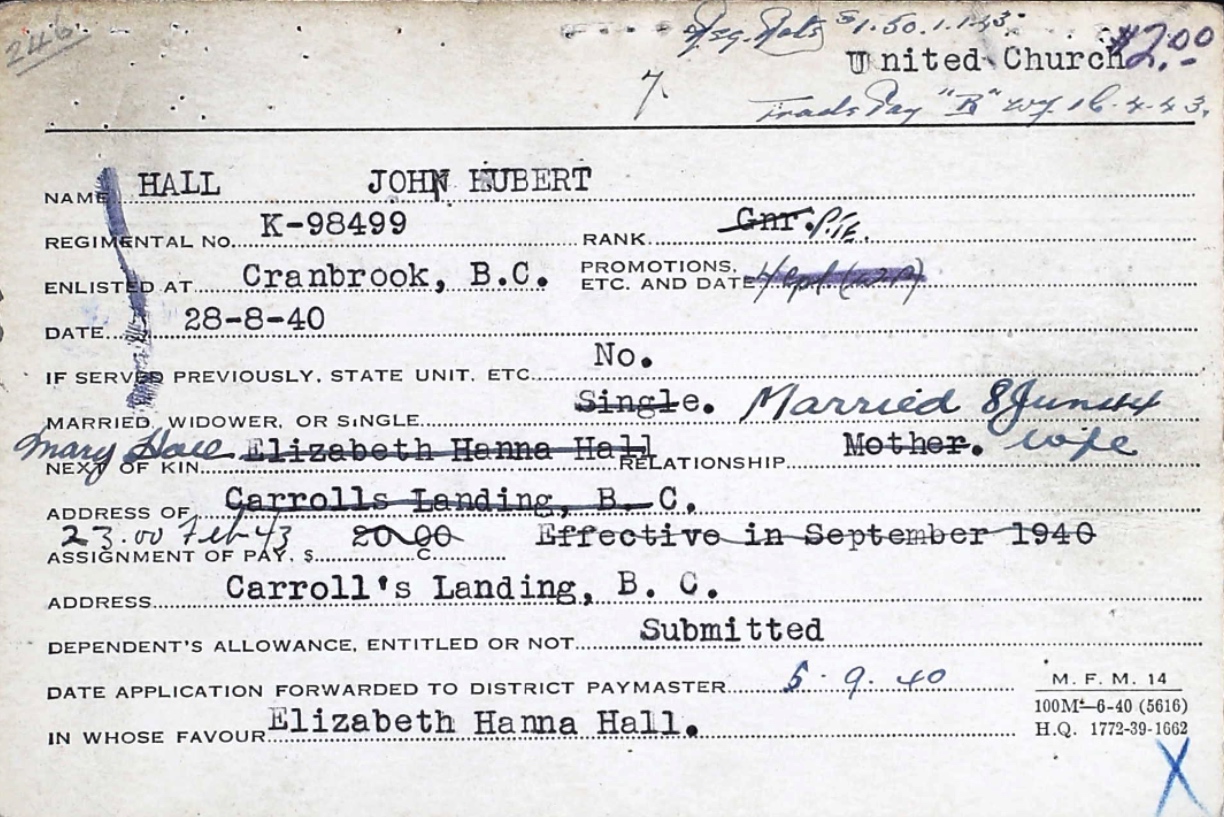 246
$1.50.1.1.43.
United Church $2.00
7.
Trades Pay "B" 16.4.43.
NAME HALL JOHN HUBERT
REGIMENTAL NO. K-98499 RANK Gnr. Pte.
ENLISTED AT Cranbrook, B.C. PROMOTIONS, ETC. AND DATE
DATE 28-8-40
IF SERVED PREVIOUSLY, STATE UNIT, ETC. No.
MARRIED, WIDOWER, OR SINGLE Single. Married 8 Jun 44
Mary Hall
NEXT OF KIN Elizabeth Hanna Hall RELATIONSHIP Mother. wife
ADDRESS OF Carrolls Landing, B. C.
23.00 Feb 43
ASSIGNMENT OF PAY, $ 20 00 C. Effective in September 1940
ADDRESS Carroll's Landing, B. C.
DEPENDENT'S ALLOWANCE, ENTITLED OR NOT Submitted
DATE APPLICATION FORWARDED TO DISTRICT PAYMASTER 5.9.40
IN WHOSE FAVOUR Elizabeth Hanna Hall.
M. F. M. 14
100M—6-40 (5616)
H.Q. 1772-39-1662
X